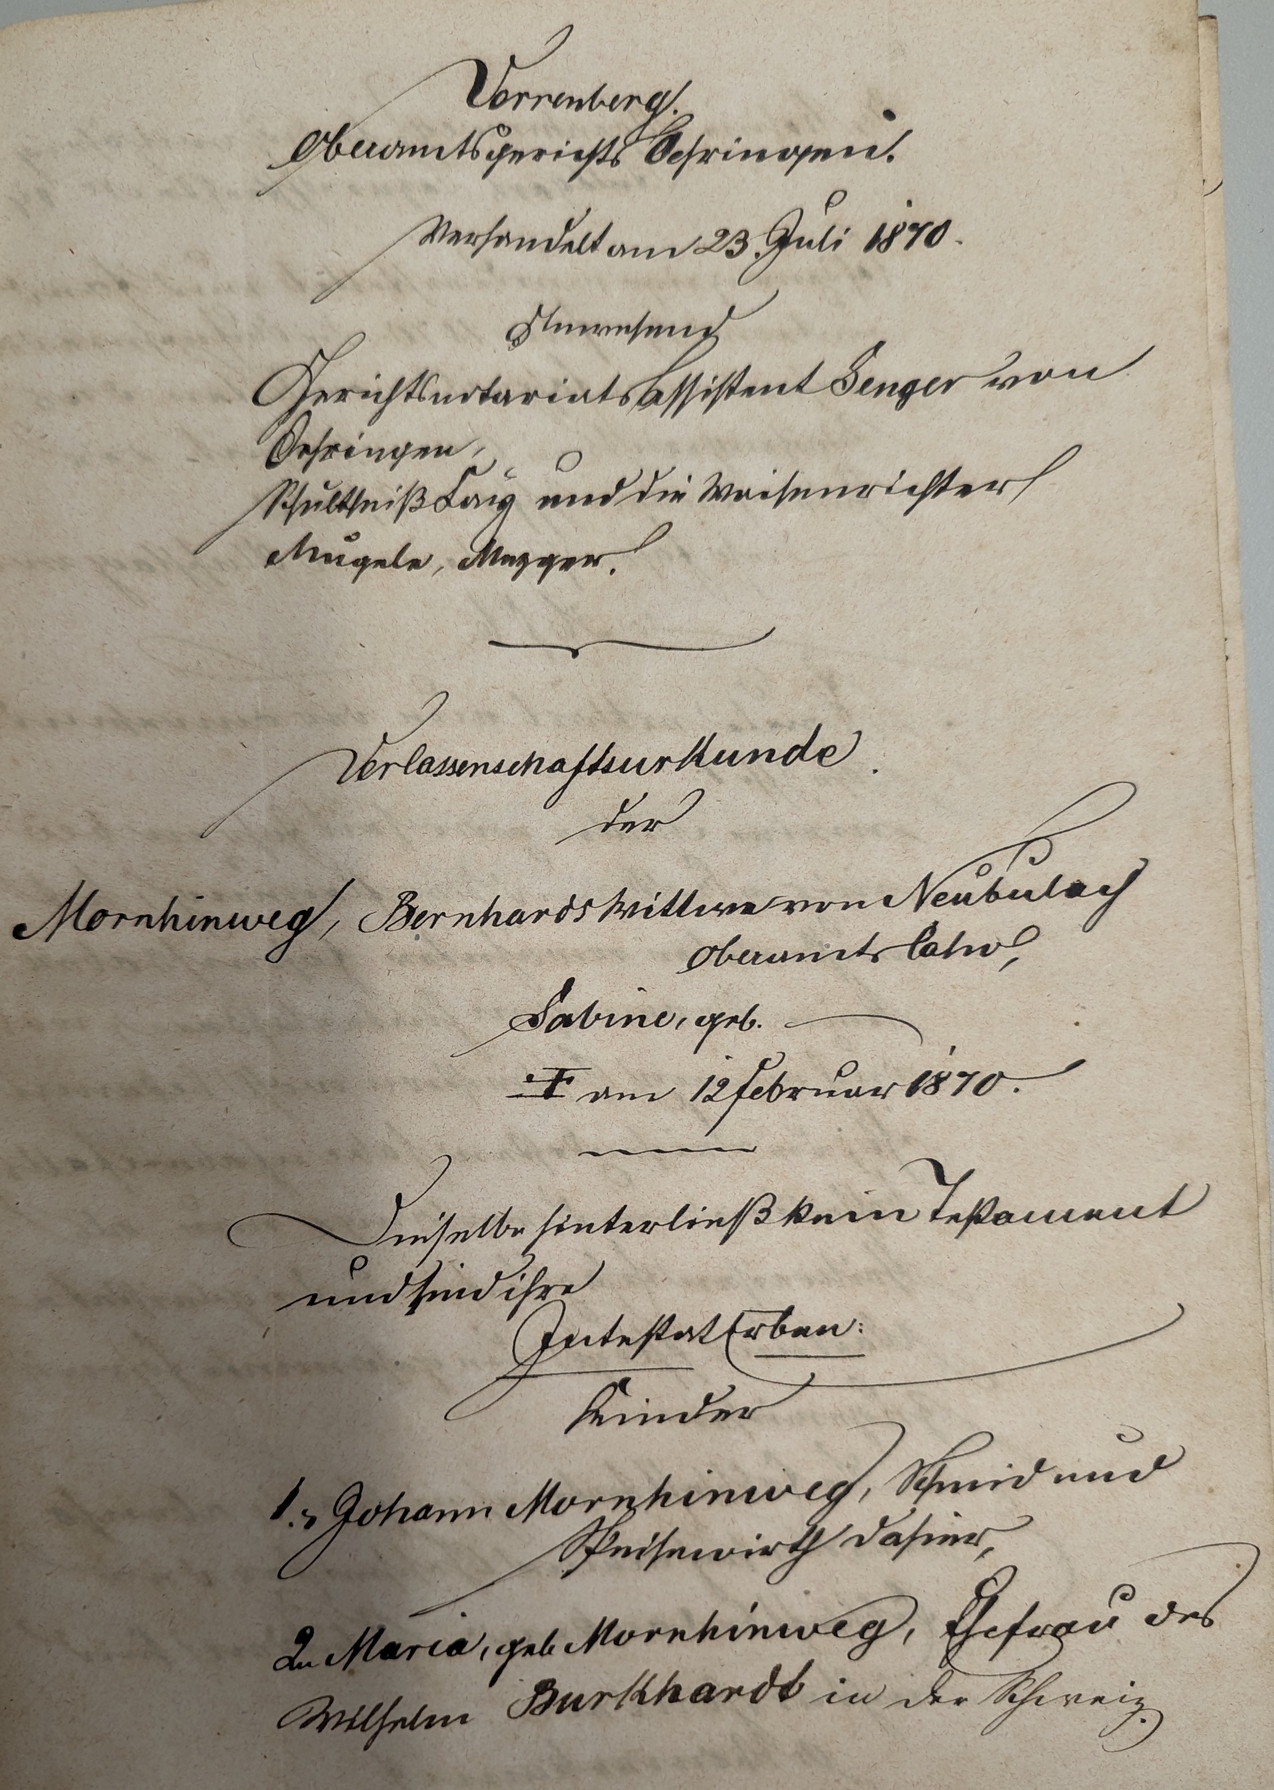 Verrenberg.
Oberamtsgerichts Oehringen.
Verhandelt am 23. Juli 1870.
Anwesend
Gerichtsnotariats Assistent Senger von
Oehringen,
Schultheiß Lay und die Waisenrichter
Mugele, Mezger.
Verlassenschaftsurkunde.
der
Mornhinweg, Bernhards Wittwe von Neubulach
Oberamts Calw,
Sabine, geb.
† am 12 Februar 1870.
Dieselbe hinterließ kein Testament
und sind ihre
Intestat Erben:
Kinder
1., Johann Mornhinweg, Schmid und
Speisewirth dahier,
2., Maria, geb. Mornhinweg, Ehefrau des
Wilhelm Burkhardt in der Schweiz.